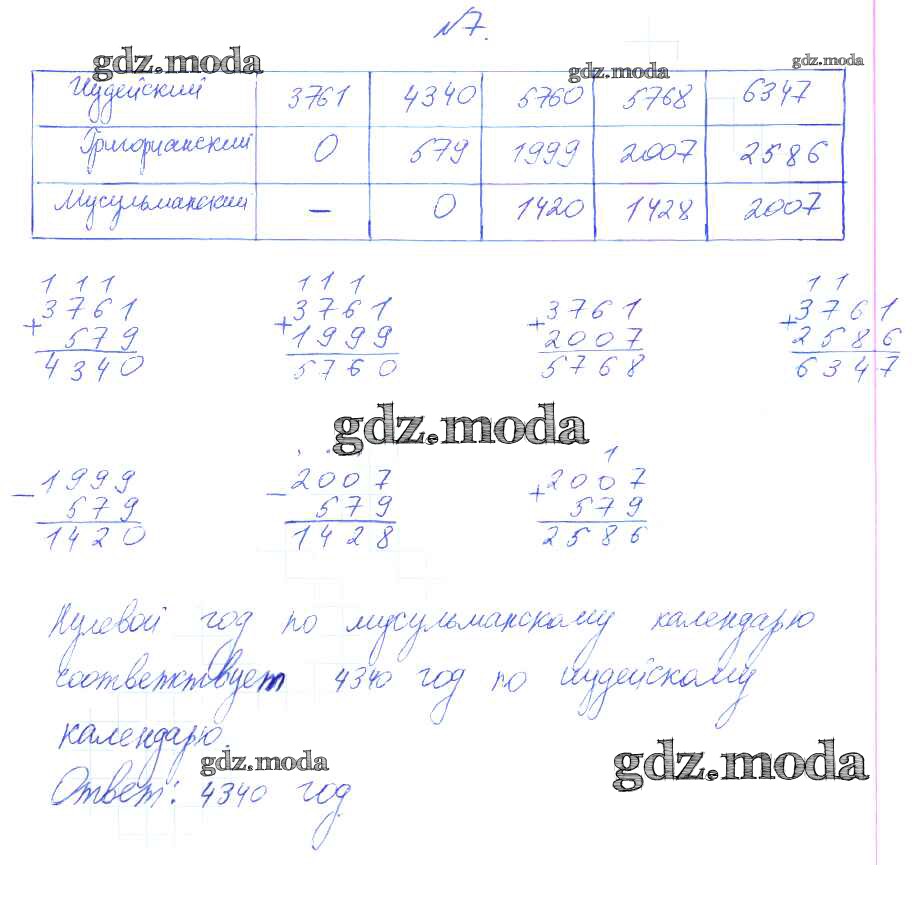 №7.
gdz.moda gdz.moda gdz.moda
Иудейский 3761 4340 5760 5768 6347
Григорианский 0 579 1999 2007 2586
Мусульманский – 0 1420 1428 2007
1 1 1 1 1 1 1 1
+ 3761 + 3761 + 3761 + 3761
579 1999 2007 2586
4340 5760 5768 6347
gdz.moda
1
– 1999 – 2007 + 2007
579 579 579
1420 1428 2586
Нулевой год по мусульманскому календарю
соответствует 4340 год по иудейскому
календарю.
gdz.moda gdz.moda
Ответ: 4340 год.